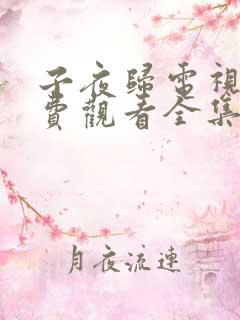 子夜歸電視
費觀看全集
月夜流連